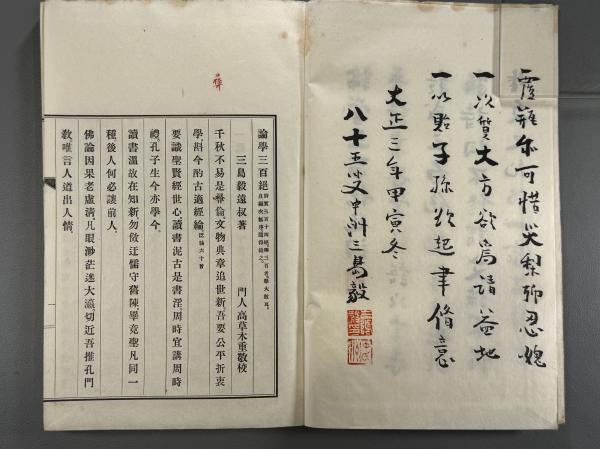 可惜災梨聊忍媿
一以質大方欲為請益地
一以貽子孫欲起聿脩意
大正三年甲寅冬
八十五叟中洲三島毅
論學三百絕
三島毅遠叔著 門人高草木重敬校
千秋不易是彝倫、文物典章追世新、吾要公平折衷
學、斟今酌古適經綸 汎論六十首
要識聖賢經世心讀書泥古是書淫周時宜講周時
禮、孔子生今亦學今。
讀書溫故在知新勿倣迂儒守舊陳畢竟聖凡同一
種後人何必談前人。
佛論因果老虛淸凡眼渺茫迷大瀛切近吾推孔門
敎唯言人道出人情。
一